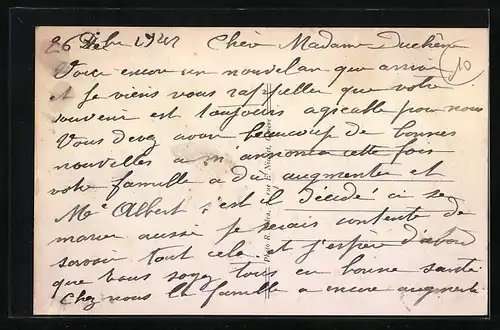 26 Débre 1942 Chère Madame Duchêne
Voici encore un nouvel an qui arrive
et Je viens vous rappeller que votre
souvenir est toujours agréable pour nous
Vous devez avoir beaucoup de bonnes
nouvelles a m'annoncer cette fois
votre famille a du augmenter et
Mr Albert s'est il décidé a se
marier aussi je serais contente de
savoir tout cela et j'espère d'abord
que vous soyez tous en bonne santé
Chez nous la famille a encore augmenté
10
Photo R. rue E. Nicolet,